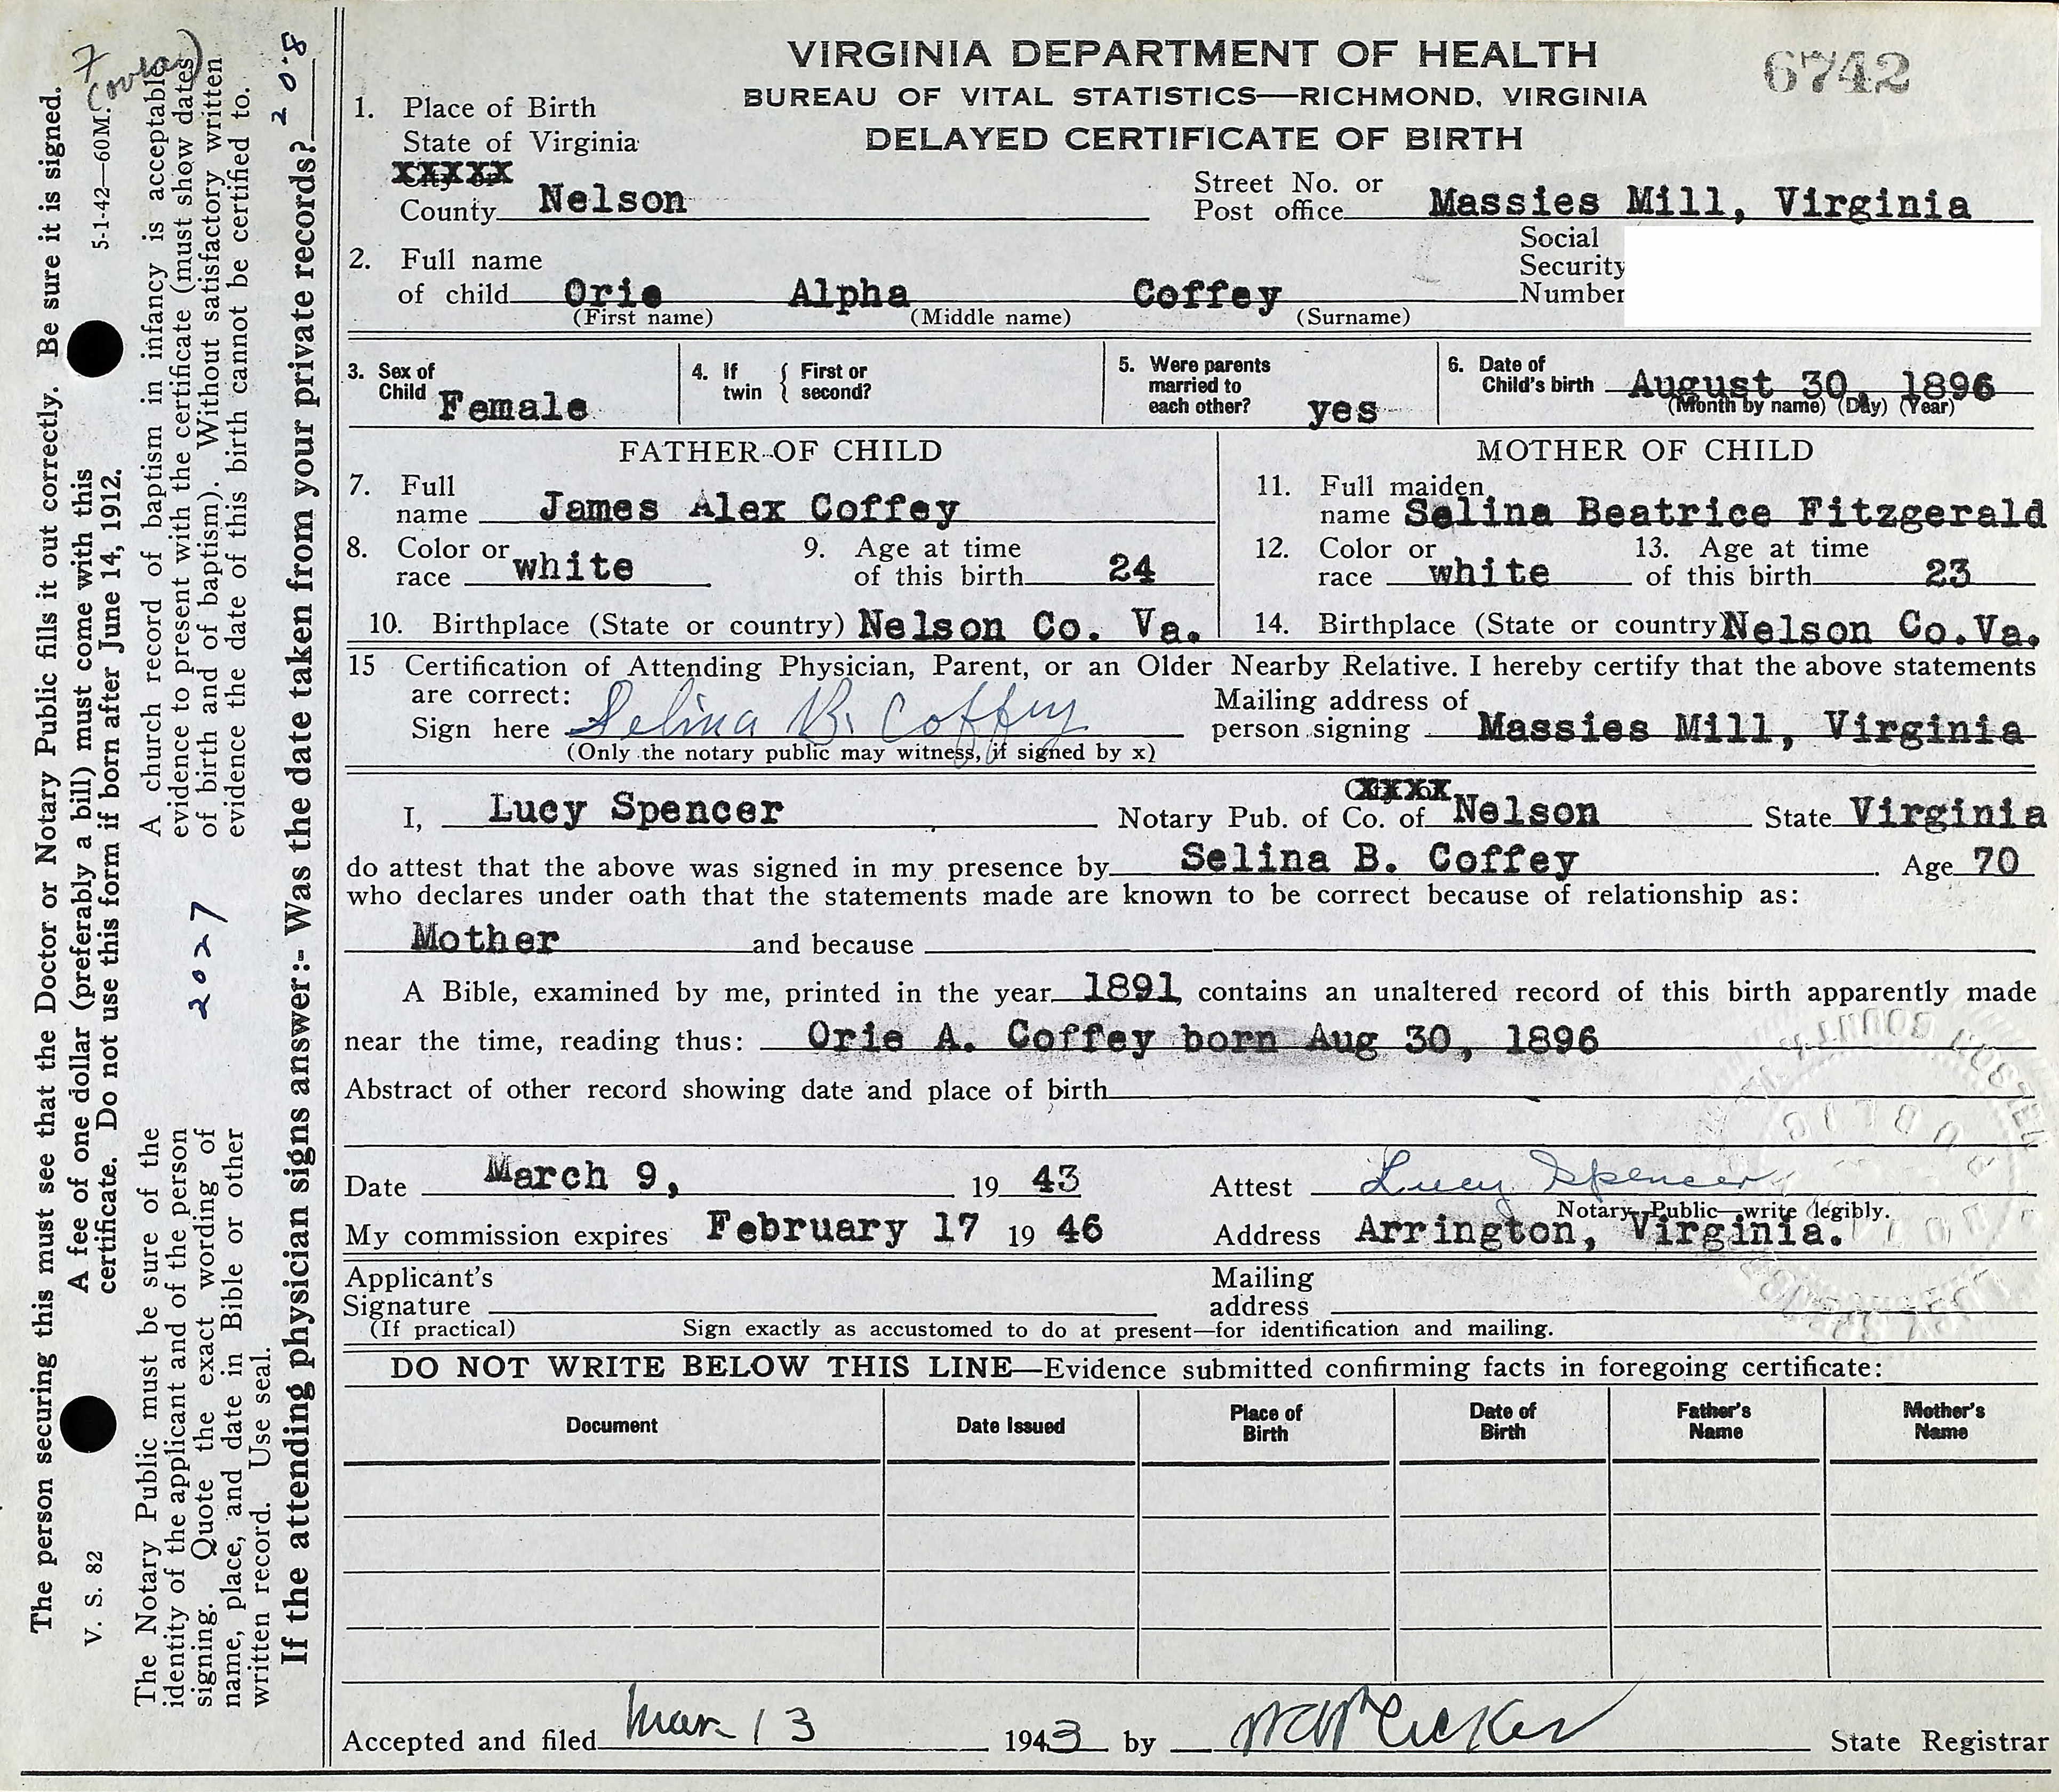 VIRGINIA DEPARTMENT OF HEALTH
6742
BUREAU OF VITAL STATISTICS—RICHMOND, VIRGINIA
DELAYED CERTIFICATE OF BIRTH
1. Place of Birth
State of Virginia
XXXXX
County Nelson
Street No. or
Post office Massies Mill, Virginia
2. Full name
of child Orie Alpha Coffey
(First name) (Middle name) (Surname)
Social
Security
Number
3. Sex of
Child Female
4. If
twin { First or
second?
5. Were parents
married to
each other? yes
6. Date of
Child's birth August 30, 1896
(Month by name) (Day) (Year)
FATHER OF CHILD
7. Full
name James Alex Coffey
8. Color or
race white
9. Age at time
of this birth 24
10. Birthplace (State or country) Nelson Co. Va.
MOTHER OF CHILD
11. Full maiden
name Selina Beatrice Fitzgerald
12. Color or
race white
13. Age at time
of this birth 23
14. Birthplace (State or country Nelson Co.Va.
15 Certification of Attending Physician, Parent, or an Older Nearby Relative. I hereby certify that the above statements
are correct:
Sign here Selina B. Coffey
(Only the notary public may witness, if signed by x)
Mailing address of
person signing Massies Mill, Virginia
I, Lucy Spencer Notary Pub. of Co. of Nelson State Virginia
do attest that the above was signed in my presence by Selina B. Coffey. Age 70
who declares under oath that the statements made are known to be correct because of relationship as:
Mother and because
A Bible, examined by me, printed in the year 1891 contains an unaltered record of this birth apparently made
near the time, reading thus: Orie A. Coffey born Aug 30, 1896
Abstract of other record showing date and place of birth
Date March 9, 19 43
Attest Lucy Spencer
Notary Public—write legibly.
My commission expires February 17 19 46
Address Arrington, Virginia.
Applicant's
Signature
(If practical)
Mailing
address
Sign exactly as accustomed to do at present—for identification and mailing.
DO NOT WRITE BELOW THIS LINE—Evidence submitted confirming facts in foregoing certificate:
Document
Date Issued
Place of
Birth
Date of
Birth
Father's
Name
Mother's
Name
Accepted and filed Mar 13 1943 by State Registrar
The person securing this must see that the Doctor or Notary Public fills it out correctly. Be sure it is signed.
A fee of one dollar (preferably a bill) must come with this
certificate. Do not use this form if born after June 14, 1912.
V. S. 82
5-1-42—60M.
7
A church record of baptism in infancy is acceptable
evidence to present with the certificate (must show dates
of birth and of baptism). Without satisfactory written
evidence the date of this birth cannot be certified to.
2027
The Notary Public must be sure of the
identity of the applicant and of the person
signing. Quote the exact wording of
name, place, and date in Bible or other
written record. Use seal.
If the attending physician signs answer:- Was the date taken from your private records?
208